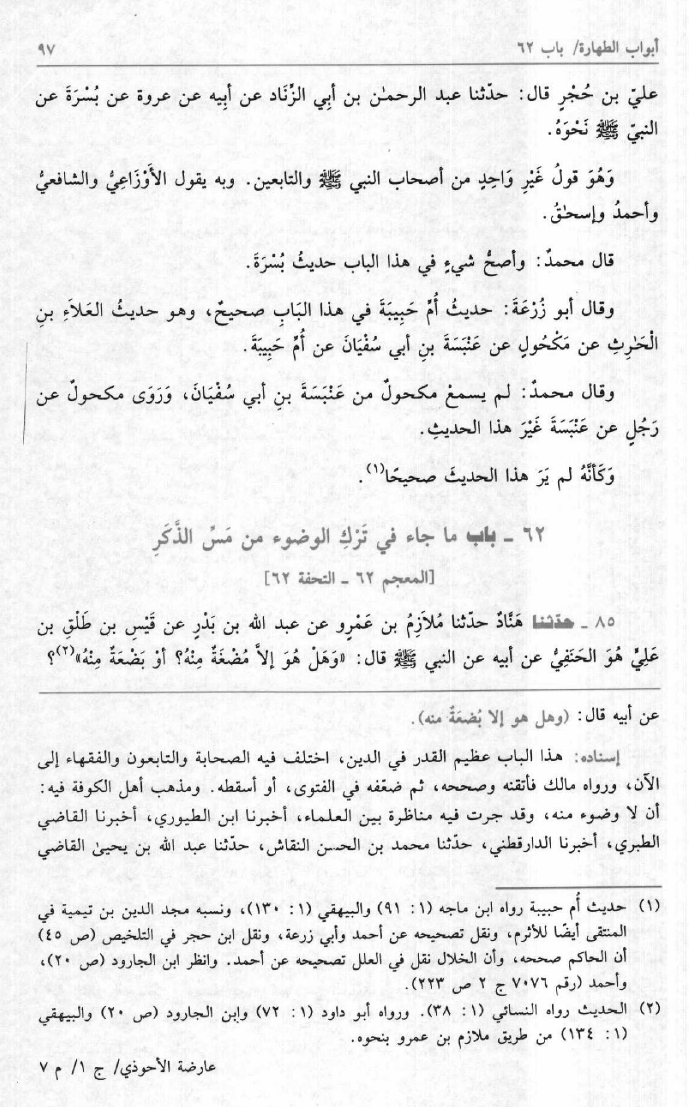 أبواب الطهارة/ باب ٦٢ ٩٧
عليّ بن حُجْرٍ قال: حدّثنا عبد الرحمٰن بن أبي الزِّنَاد عن أبِيه عن عروة عن بُسْرَةَ عن
النبيّ ﷺ نَحْوَهُ.
وَهُوَ قولُ غَيْرِ وَاحِدٍ من أصحاب النبي ﷺ والتابعين. وبه يقول الأَوْزَاعِيُّ والشافعيُّ
وأحمدُ وإسحٰقُ.
قال محمدٌ: وأصحُّ شيءٍ في هذا الباب حديثُ بُسْرَةَ.
وقال أبو زُرْعَةَ: حديثُ أُمِّ حَبِيبَةَ في هذا البَابِ صحيحٌ، وهو حديثُ العَلاَءِ بنِ
الْحَٰرِثِ عن مَكْحُولٍ عن عَنْبَسَةَ بنِ أبي سُفْيَانَ عن أُمِّ حَبِيبَةَ.
وقال محمدٌ: لم يسمعْ مكحولٌ من عَنْبَسَةَ بنِ أبي سُفْيَانَ، وَرَوَى مكحولٌ عن
رَجُلٍ عن عَنْبَسَةَ غَيْرَ هذا الحديثِ.
وَكَأنَّهُ لم يَرَ هذا الحديثَ صحيحًا(١).
٦٢ ـ باب ما جاء في تَرْكِ الوضوء من مَسِّ الذَّكَرِ
[المعجم ٦٢ ـ التحفة ٦٢]
٨٥ ـ حدّثنا هَنَّادٌ حدّثنا مُلاَزِمُ بن عَمْرٍو عن عبد الله بن بَدْرٍ عن قَيْسِ بن طَلْقِ بن
عَلِيٍّ هُوَ الحَنَفِيُّ عن أبيه عن النبي ﷺ قال: «وَهَلْ هُوَ إلاَّ مُضْغَةٌ مِنْهُ؟ أوْ بَضْعَةٌ مِنْهُ»(٢)؟
عن أبيه قال: (وهل هو إلا بُضعَةٌ منه).
إسناده: هذا الباب عظيم القدر في الدين، اختلف فيه الصحابة والتابعون والفقهاء إلى
الآن، ورواه مالك فأتقنه وصححه، ثم ضقفه في الفتوى، أو أسقطه. ومذهب أهل الكوفة فيه:
أن لا وضوء منه، وقد جرت فيه مناظرة بين العلماء، أخبرنا ابن الطيوري، أخبرنا القاضي
الطبري، أخبرنا الدارقطني، حدّثنا محمد بن الحسن النقاش، حدّثنا عبد الله بن يحيىٰ القاضي
(١) حديث أُم حبيبة رواه ابن ماجه (١: ٩١) والبيهقي (١: ١٣٠)، ونسبه مجد الدين بن تيمية في
المنتقى أيضًا للأثرم، ونقل تصحيحه عن أحمد وأبي زرعة، ونقل ابن حجر في التلخيص (ص ٤٥)
أن الحاكم صححه، وأن الخلال نقل في العلل تصحيحه عن أحمد. وانظر ابن الجارود (ص ٢٠)،
وأحمد (رقم ٧٠٧٦ ج ٢ ص ٢٢٣).
(٢) الحديث رواه النسائي (١: ٣٨). ورواه أبو داود (١: ٧٢) وابن الجارود (ص ٢٠) والبيهقي
(١: ١٣٤) من طريق ملازم بن عمرو بنحوه.
عارضة الأحوذي/ ج ١/ م ٧